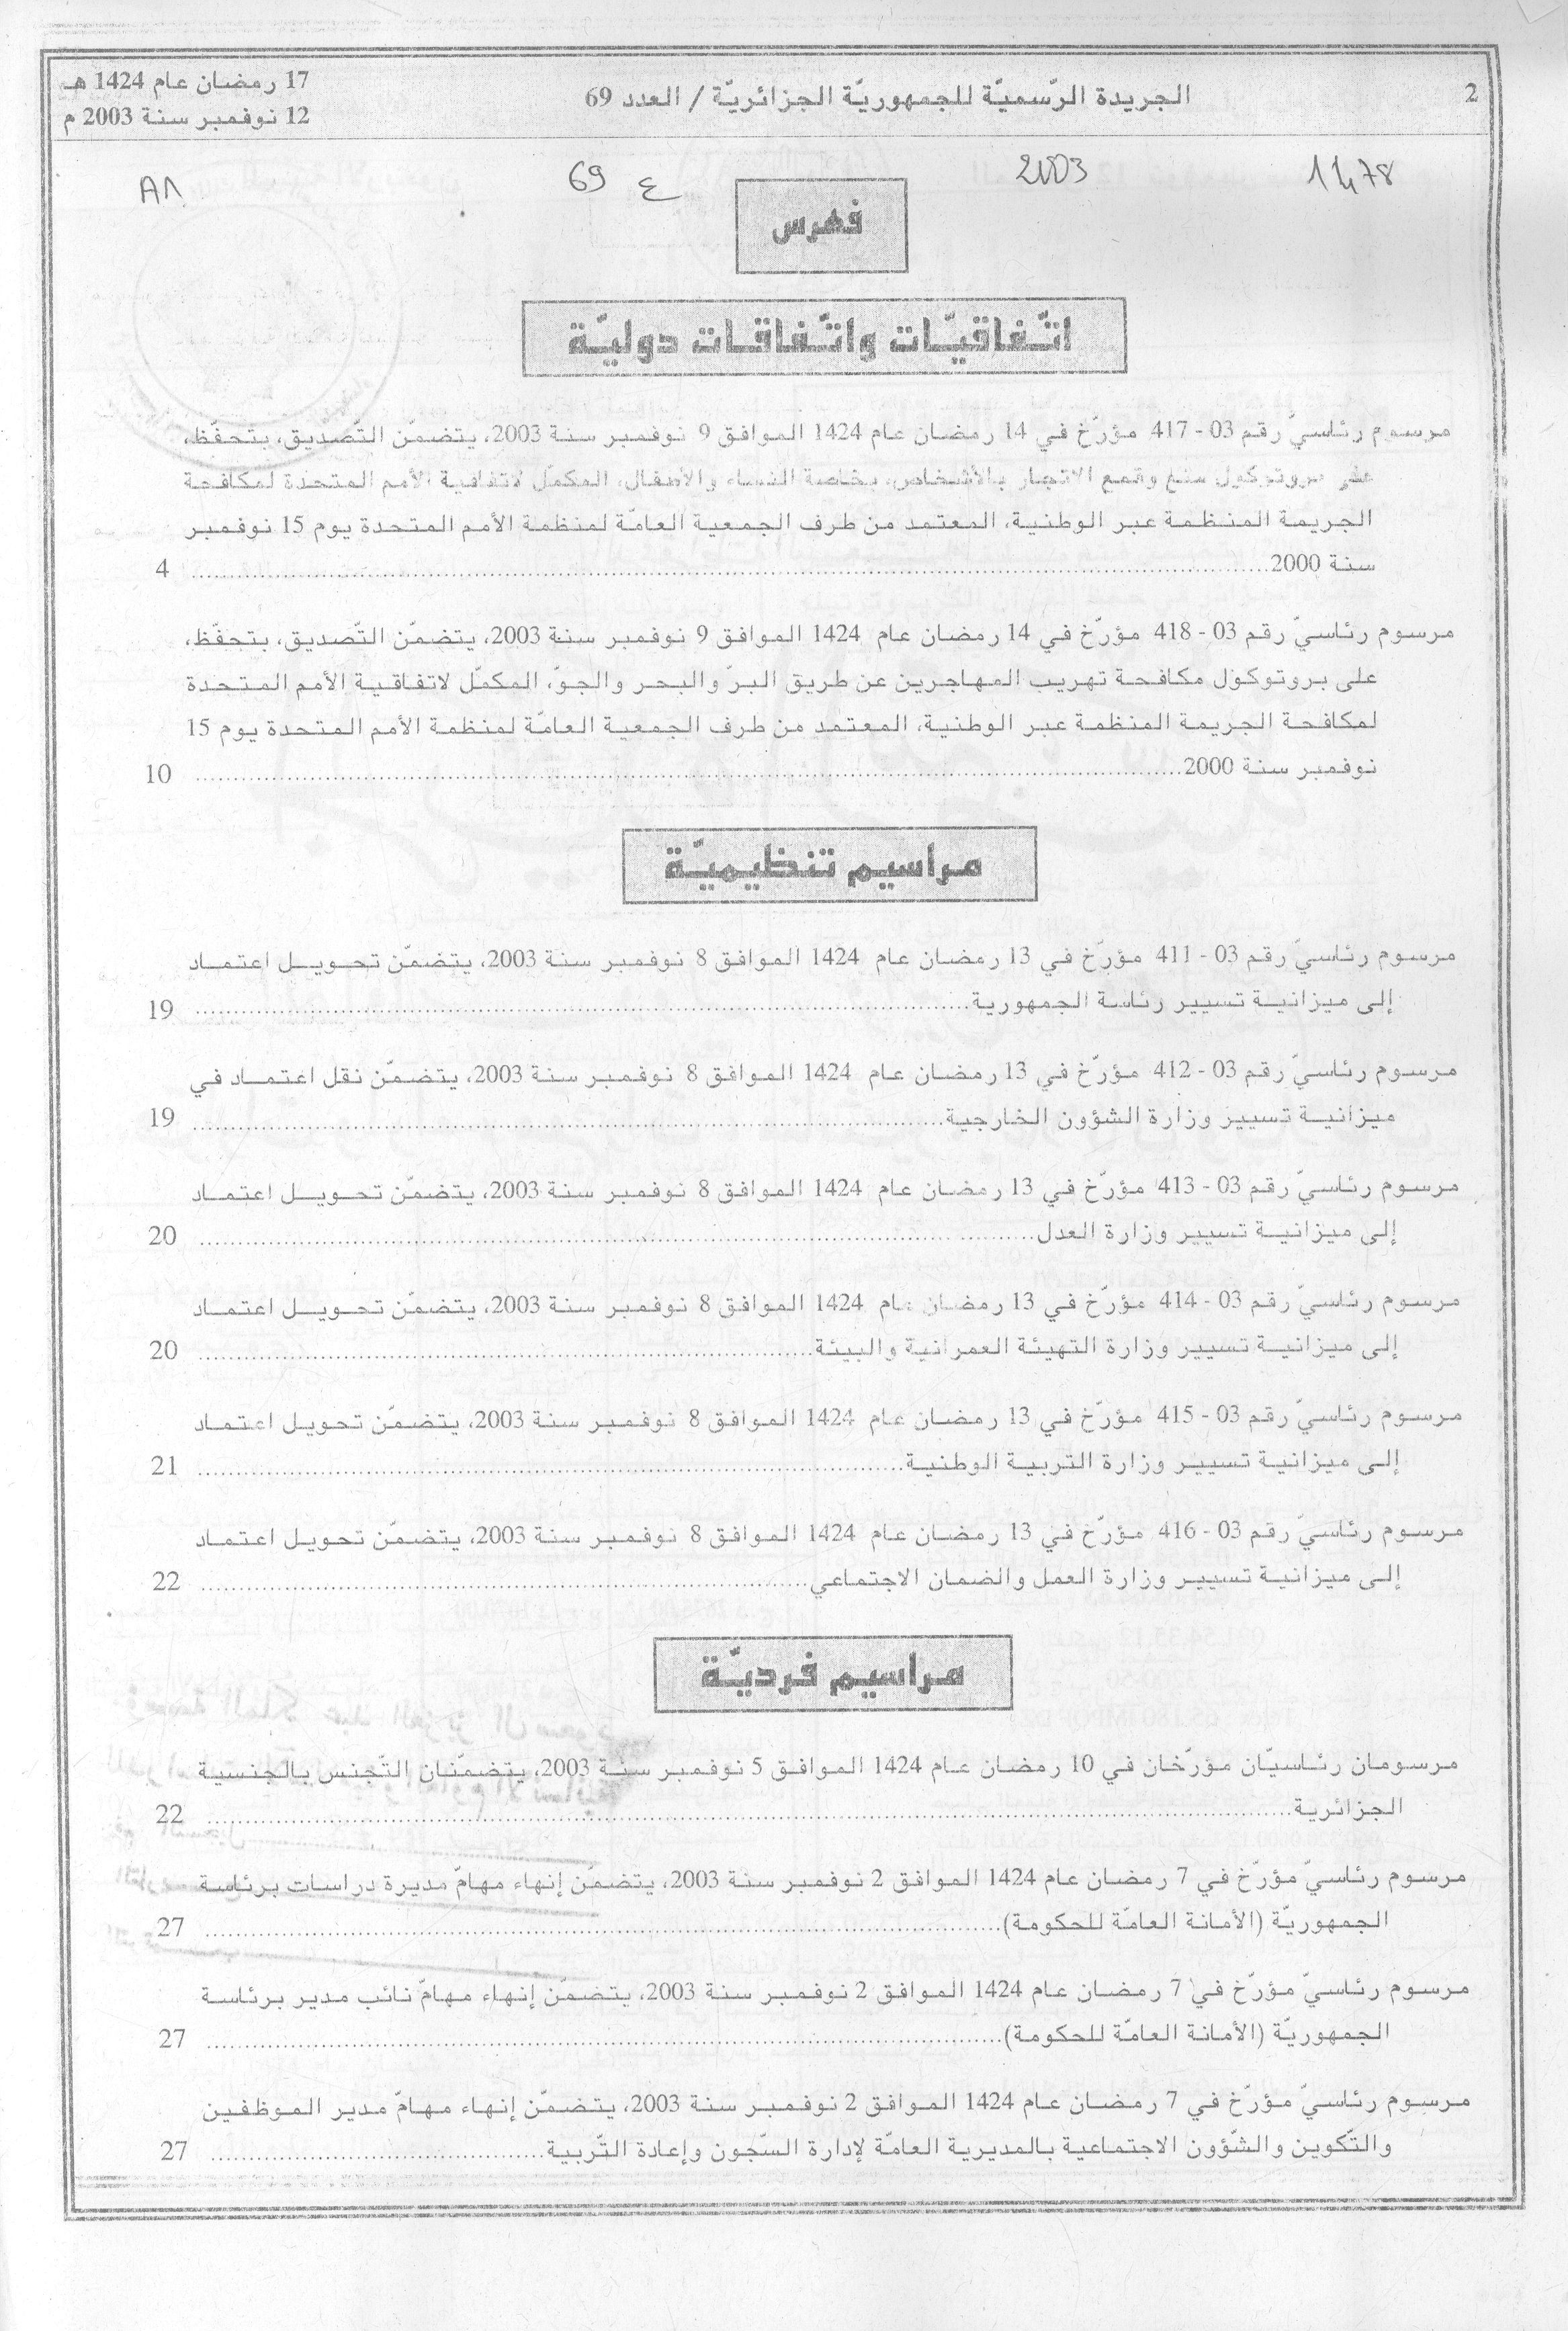 2
الجريدة الرّسميّة للجمهوريّة الجزائريّة / العدد 69
17 رمضان عام 1424 هـ
12 نوفمبر سنة 2003 م
2003
ع 69
فهرس
اتّفاقيّات واتّفاقات دوليّة
مرسوم رئاسيّ رقم 03 - 417 مؤرّخ في 14 رمضان عام 1424 الموافق 9 نوفمبر سنة 2003، يتضمّن التّصديق، بتحفّظ،
على بروتوكول منع وقمع الاتجار بالأشخاص، بخاصة النساء والأطفال، المكمّل لاتفاقية الأمم المتحدة لمكافحة
الجريمة المنظمة عبر الوطنية، المعتمد من طرف الجمعية العامّة لمنظمة الأمم المتحدة يوم 15 نوفمبر
سنة 2000.......... 4
مرسوم رئاسيّ رقم 03 - 418 مؤرّخ في 14 رمضان عام 1424 الموافق 9 نوفمبر سنة 2003، يتضمّن التّصديق، بتحفّظ،
على بروتوكول مكافحة تهريب المهاجرين عن طريق البرّ والبحر والجوّ، المكمّل لاتفاقية الأمم المتحدة
لمكافحة الجريمة المنظمة عبر الوطنية، المعتمد من طرف الجمعية العامّة لمنظمة الأمم المتحدة يوم 15
نوفمبر سنة 2000.......... 10
مراسيم تنظيميّة
مرسوم رئاسيّ رقم 03 - 411 مؤرّخ في 13 رمضان عام 1424 الموافق 8 نوفمبر سنة 2003، يتضمّن تحويل اعتماد
إلى ميزانية تسيير رئاسة الجمهورية.......... 19
مرسوم رئاسيّ رقم 03 - 412 مؤرّخ في 13 رمضان عام 1424 الموافق 8 نوفمبر سنة 2003، يتضمّن نقل اعتماد في
ميزانية تسيير وزارة الشؤون الخارجية.......... 19
مرسوم رئاسيّ رقم 03 - 413 مؤرّخ في 13 رمضان عام 1424 الموافق 8 نوفمبر سنة 2003، يتضمّن تحويل اعتماد
إلى ميزانية تسيير وزارة العدل.......... 20
مرسوم رئاسيّ رقم 03 - 414 مؤرّخ في 13 رمضان عام 1424 الموافق 8 نوفمبر سنة 2003، يتضمّن تحويل اعتماد
إلى ميزانية تسيير وزارة التهيئة العمرانية والبيئة.......... 20
مرسوم رئاسيّ رقم 03 - 415 مؤرّخ في 13 رمضان عام 1424 الموافق 8 نوفمبر سنة 2003، يتضمّن تحويل اعتماد
إلى ميزانية تسيير وزارة التربية الوطنية.......... 21
مرسوم رئاسيّ رقم 03 - 416 مؤرّخ في 13 رمضان عام 1424 الموافق 8 نوفمبر سنة 2003، يتضمّن تحويل اعتماد
إلى ميزانية تسيير وزارة العمل والضمان الاجتماعي.......... 22
مراسيم فرديّة
مرسومان رئاسيّان مؤرّخان في 10 رمضان عام 1424 الموافق 5 نوفمبر سنة 2003، يتضمّنان التّجنس بالجنسية
الجزائرية.......... 22
مرسوم رئاسيّ مؤرّخ في 7 رمضان عام 1424 الموافق 2 نوفمبر سنة 2003، يتضمّن إنهاء مهامّ مديرة دراسات برئاسة
الجمهوريّة (الأمانة العامّة للحكومة).......... 27
مرسوم رئاسيّ مؤرّخ في 7 رمضان عام 1424 الموافق 2 نوفمبر سنة 2003، يتضمّن إنهاء مهامّ نائب مدير برئاسة
الجمهوريّة (الأمانة العامّة للحكومة).......... 27
مرسوم رئاسيّ مؤرّخ في 7 رمضان عام 1424 الموافق 2 نوفمبر سنة 2003، يتضمّن إنهاء مهامّ مدير الموظفين
والتّكوين والشّؤون الاجتماعية بالمديرية العامّة لإدارة السّجون وإعادة التّربية.......... 27